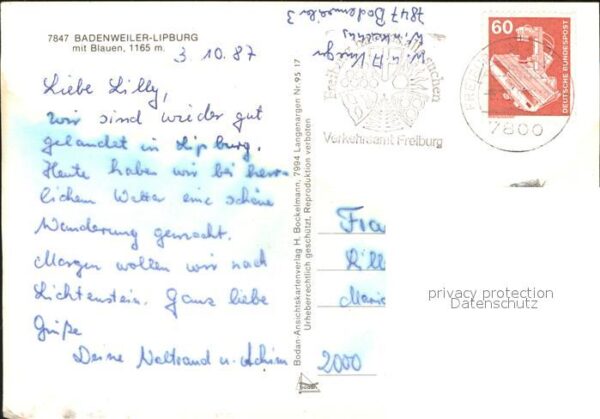 7847 BADENWEILER-LIPBURG
mit Blauen, 1165 m.
3.10.87
Liebe Lilly,
wir sind wieder gut
gelandet in Lipburg.
Heute haben wir bei herr-
lichem Wetter eine schöne
Wanderung gemacht.
Morgen wollen wir nach
Lichtenstein. Ganz liebe
Grüße
Deine Waltraud u. Achim
Bodan-Ansichtskartenverlag H. Bockelmann, 7994 Langenargen Nr. 95 17
Urheberrechtlich geschützt. Reproduktion verboten
W. u. A.
7847 Badenweiler 3
Verkehrsamt Freiburg
7800
60
DEUTSCHE BUNDESPOST
Fra
Lill
Maria
2000
privacy protection
Datenschutz